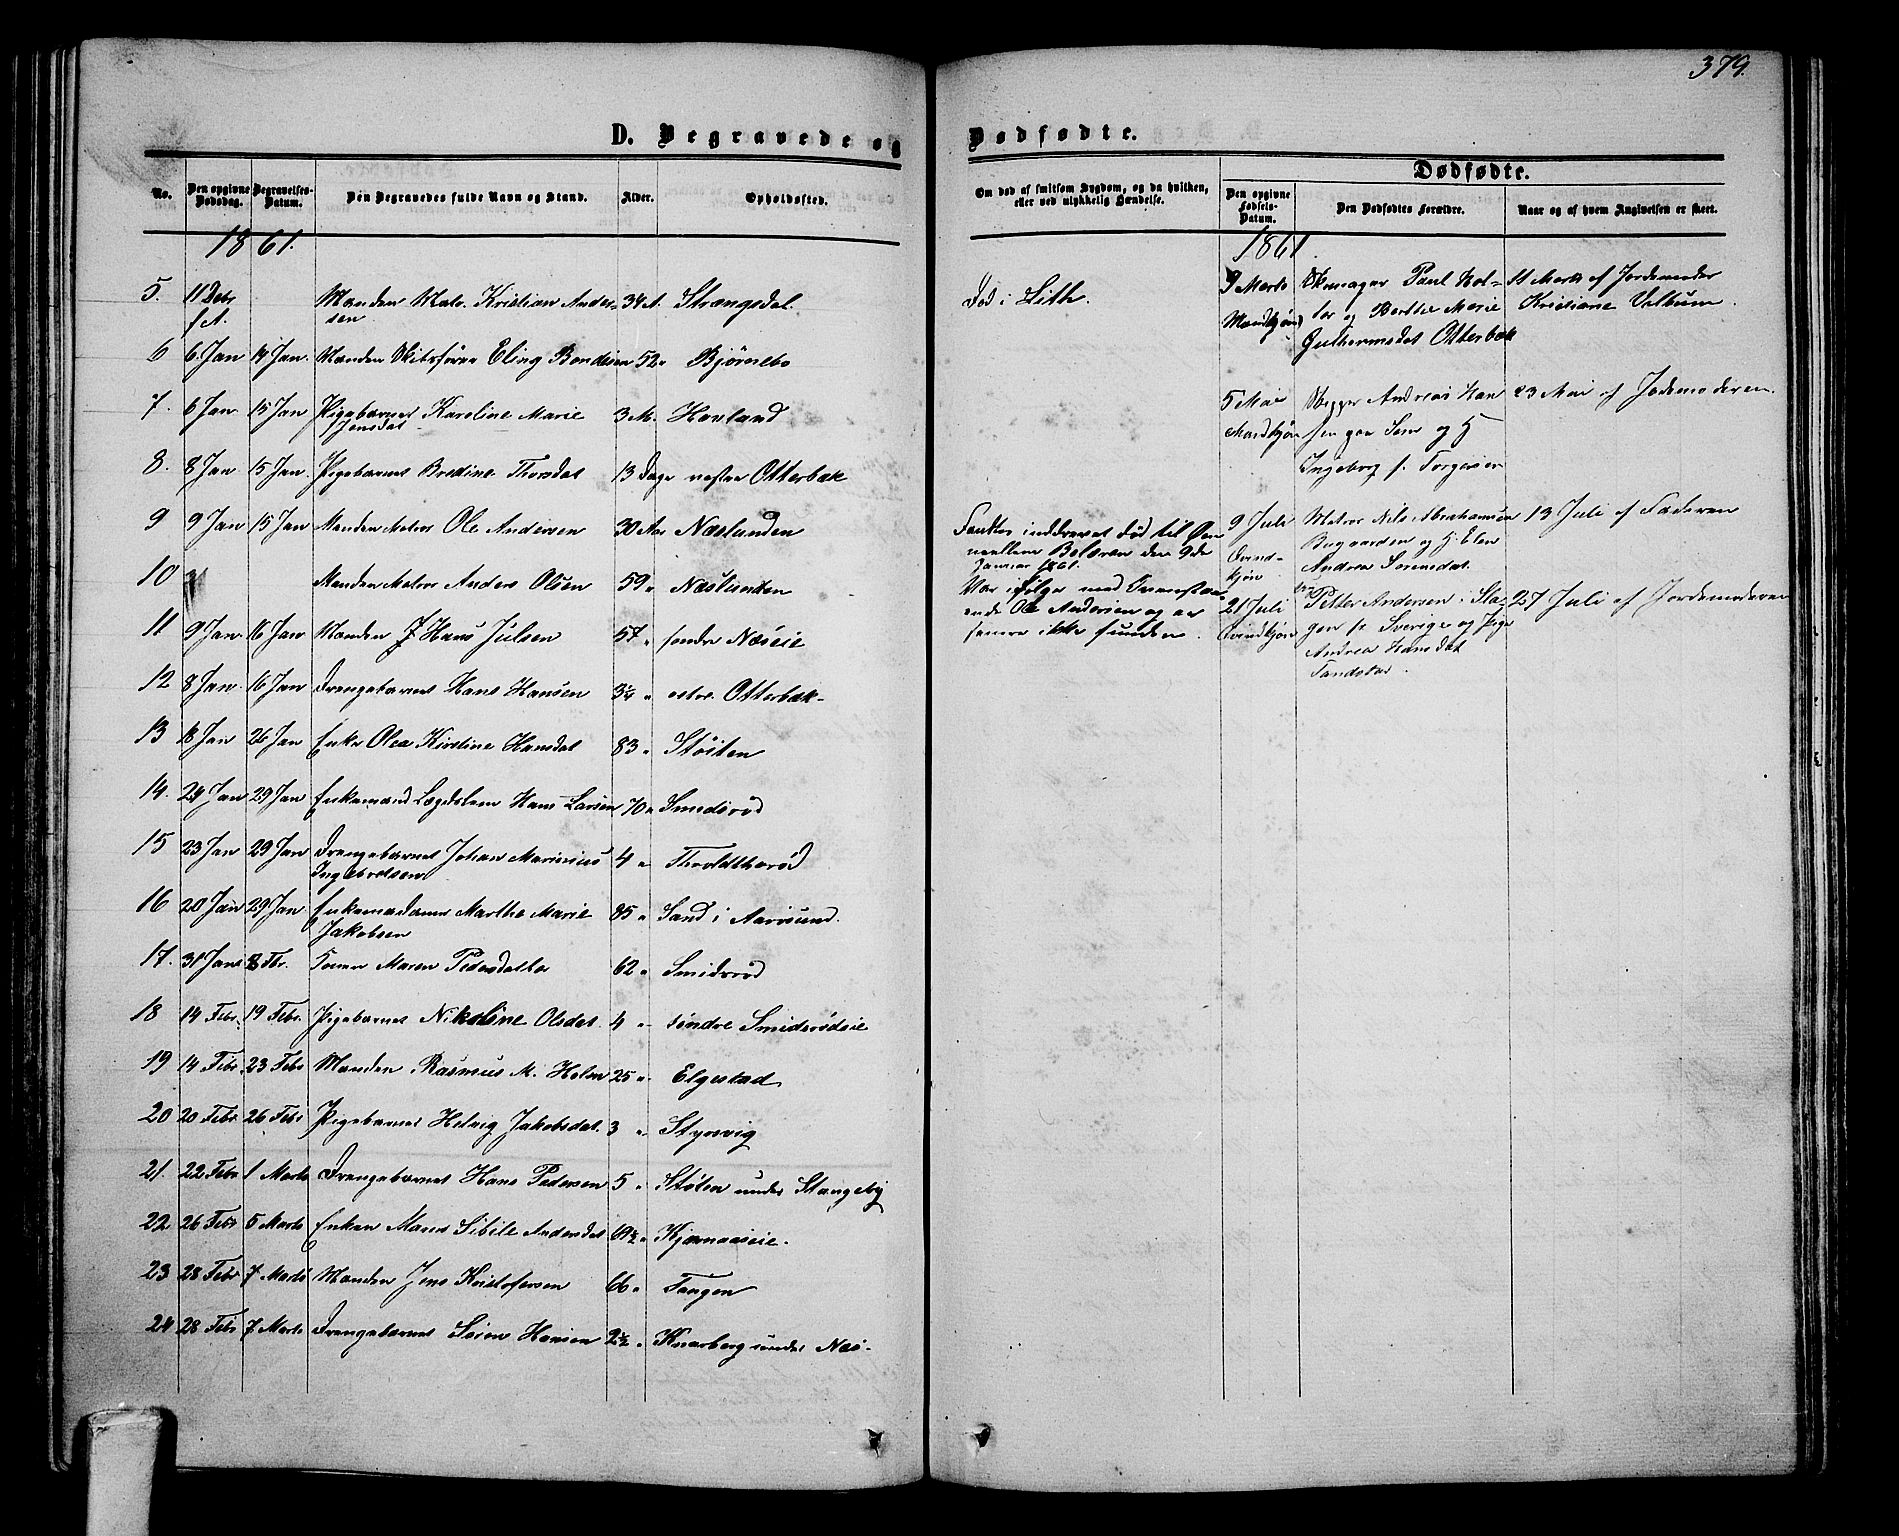 379.
D. Begravede og
Dødfødte.
No.
Den opgivne Dødsdag.
Begravelses-Datum.
Den Begravedes fulde Navn og Stand.
Alder.
Opholdssted.
Om død af smitsom Sygdom, og da hvilken, eller ved ulykkelig Hændelse.
Dødfødte.
Den opgivne Fødsels-Datum.
Den Dødfødtes Forældre.
Naar og af hvem Angivelsen er skeet.
1861.
5. 11 Debr f.A. Manden Matr. Kristian Ander- 34 A. Strængsdal
sen
6 6. Jan 14 Jan. Manden Eling Bondesen 52 " Bjørnebo
7. 6 Jan. 15 Jan Pigebarnet Karoline Marie 3 M. Havland
Jensdat
8. 8 Jan 15 Jan. Pigebarnet Bredine Thorsdat 13 Dage Otterbæk
9 9 Jan 15 Jan Manden Matros Ole Andersen 30 Aar Næslanden
10 Manden Matros Anders Olsen 59 " Næslanden
11 9 Jan 16 Jan Manden Hans Julsen 57 " søndre Næseie
12 8 Jan. 16 Jan Drengebarnet Hans Hansen 3¼ " østre Otterbæk-
13 18 Jan 26 Jan Enke Olea Kirstine Hansdat 83 " Støiten
14. 24 Jan 29 Jan Enkemand Lægdslem Hans Larsen 70 " Smidsrød
15 23 Jan 29 Jan Drengebarnet Johan Marinius 4 "
Ingebretsen
16 20 Jan 29 Jan Enkemadame Marthe Marie 85 " Sand i Aarøsund.
Jakobsen
17. 31 Jan 8 Fbr. Maren Pedersdatter 62 " Smidsrød
18 14 Febr. 19 Febr. Pigebarnet Nikoline Olsdat. 4 " søndre Smidsrødeie
19 14 Febr. 23 Febr Manden Rasmus M. Holm 25 " Elgestad
20 20 Febr. 26 Febr Pigebarnet Helvig Jakobsdat. 3 " Styrsvig
21. 22 Febr 1 Marts Drengebarnet Hans Pedersen 5 " Støten under Stangeby
22. 26 Febr 5 Marts Enken Maren Sibile Andersdat 69½ " Kjærnaaseie.
23 28 Febr 7 Marts Manden Jens Kristofersen 66 " Tangen
24 28 Febr 7 Marts Drengebarnet Søren Hansen 2½ " Knarberg under Næs-
Død i Lith.
inddrevet død til Øen
mellem Bolæren den 9de
Januar 1861.
Var i Følge med Ovenstaa-
ende Ole Andersen og er
senere ikke funden.
1861
9 Marts
Mandkjøn
Skomager Paul Hol-
ter og Berthe Marie
Guthormsdat Otterbæk
11 Marts af Jordemoder
Kristiane Velbum.
5 Mai
Mandkjøn
Andreas Han
sen paa Sem og H
Ingeborg f. Torgersen
23 Mai af Jordemoderen.
9 Juli
Qvind-
kjøn
Matros Nils Abrahamsen
Buggaarden og H. Elen
Andrea Sørensdat.
13 Juli af Faderen
21 Juli
Qvindkjøn
Petter Andersen
fr. Sverige og Pige
Andrea Hansdat
27 Juli af Jordemoderen